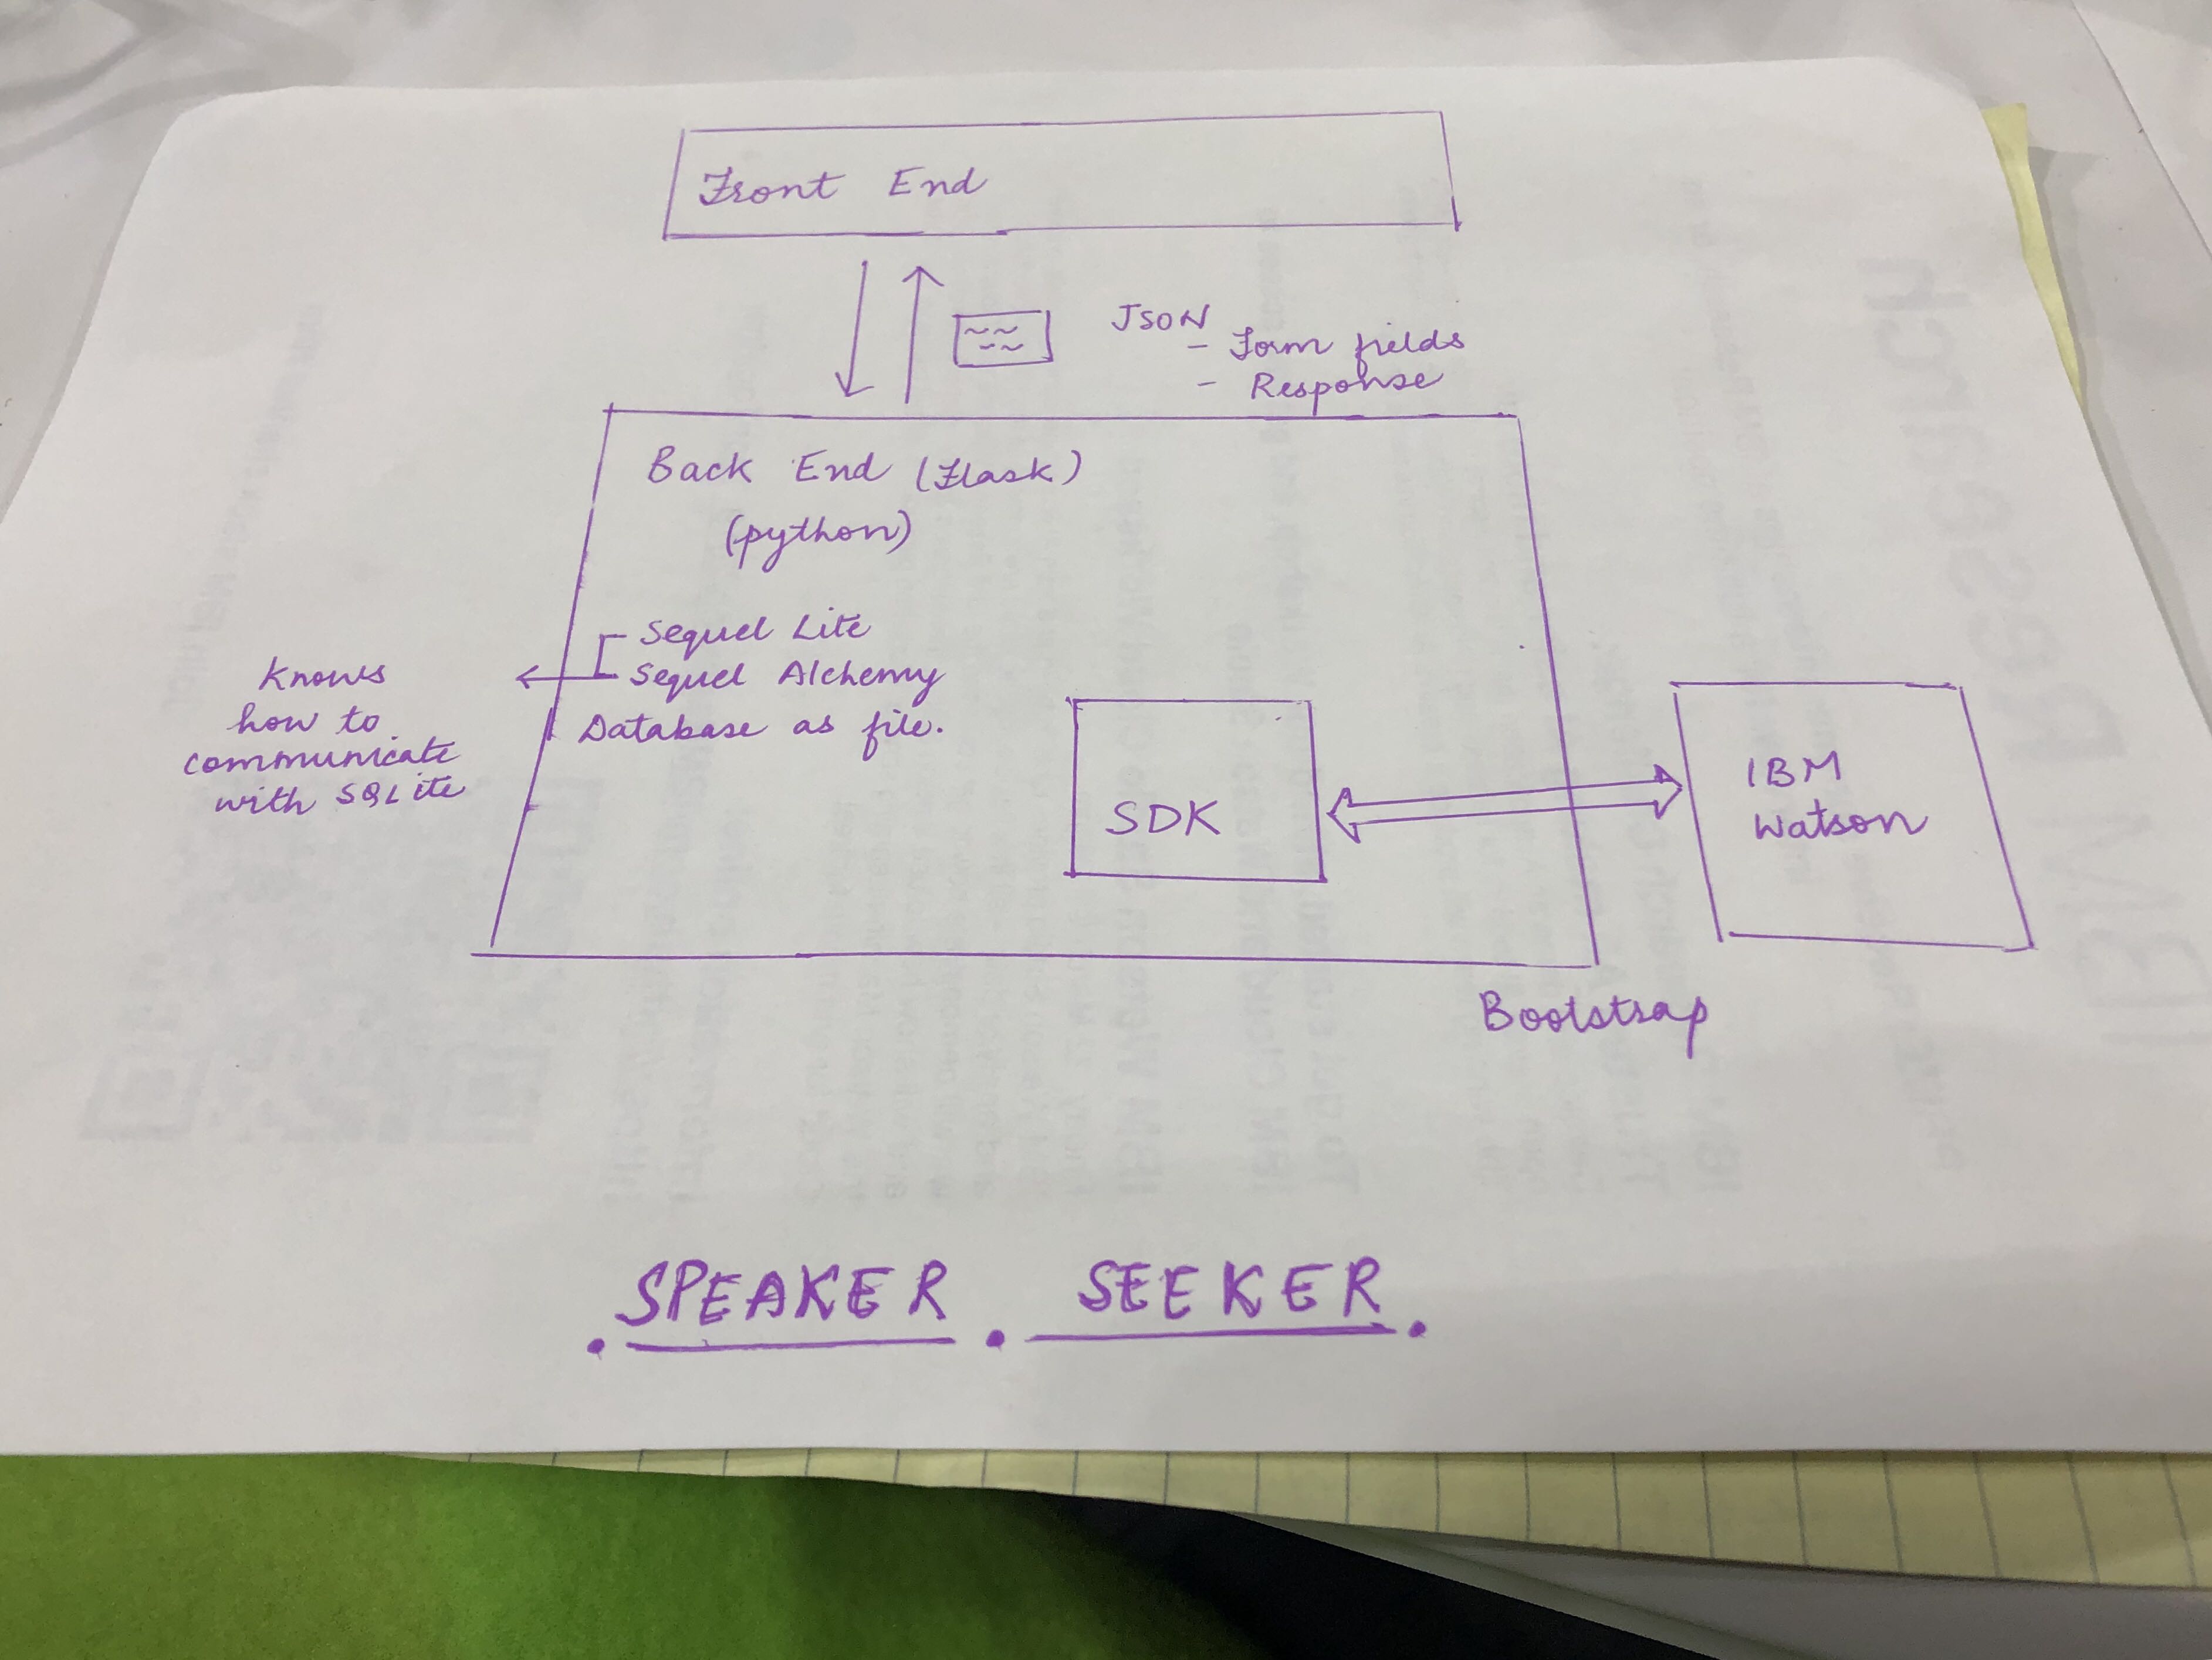 Front End
JSON
- Form fields
- Response
Back End (Flask)
(python)
Sequel Lite
Sequel Alchemy
Database as file.
Knows
how to
communicate
with SQLite
SDK
IBM
Watson
Bootstrap
SPEAKER SEEKER